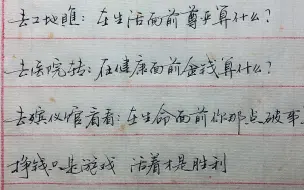 去工地瞧：在生活面前尊严算什么？
去医院转：在健康面前金钱算什么？
去殡仪馆看看：在生命面前你那点破事.
挣钱只是游戏 活着才是胜利